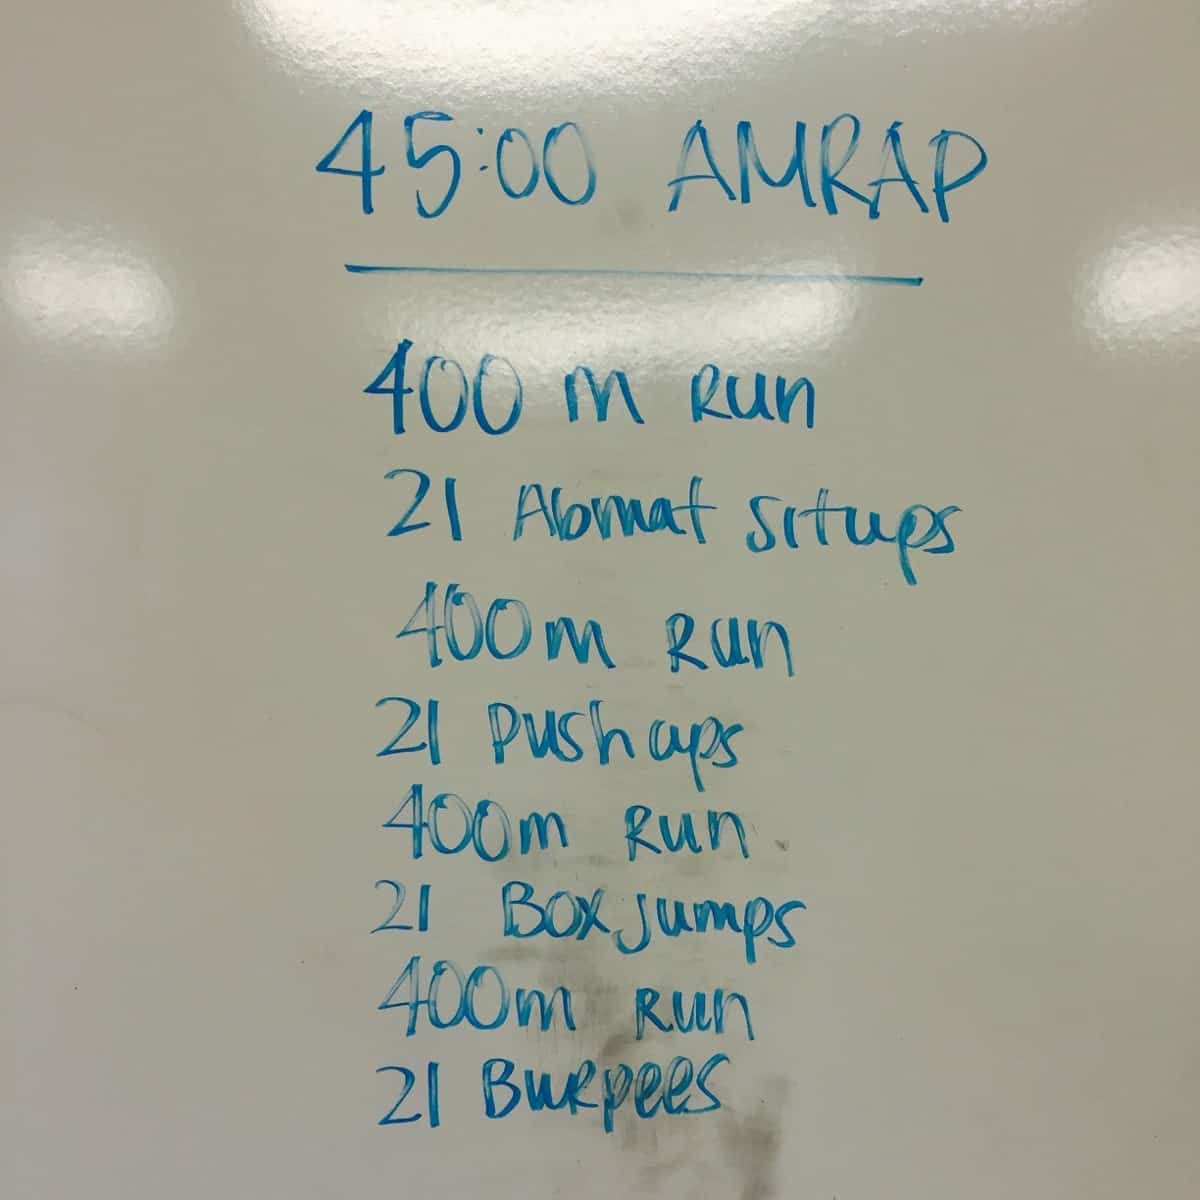 45:00 AMRAP
400 m Run
21 Abmat Situps
400m Run
21 Push ups
400m Run
21 Box Jumps
400m Run
21 Burpees